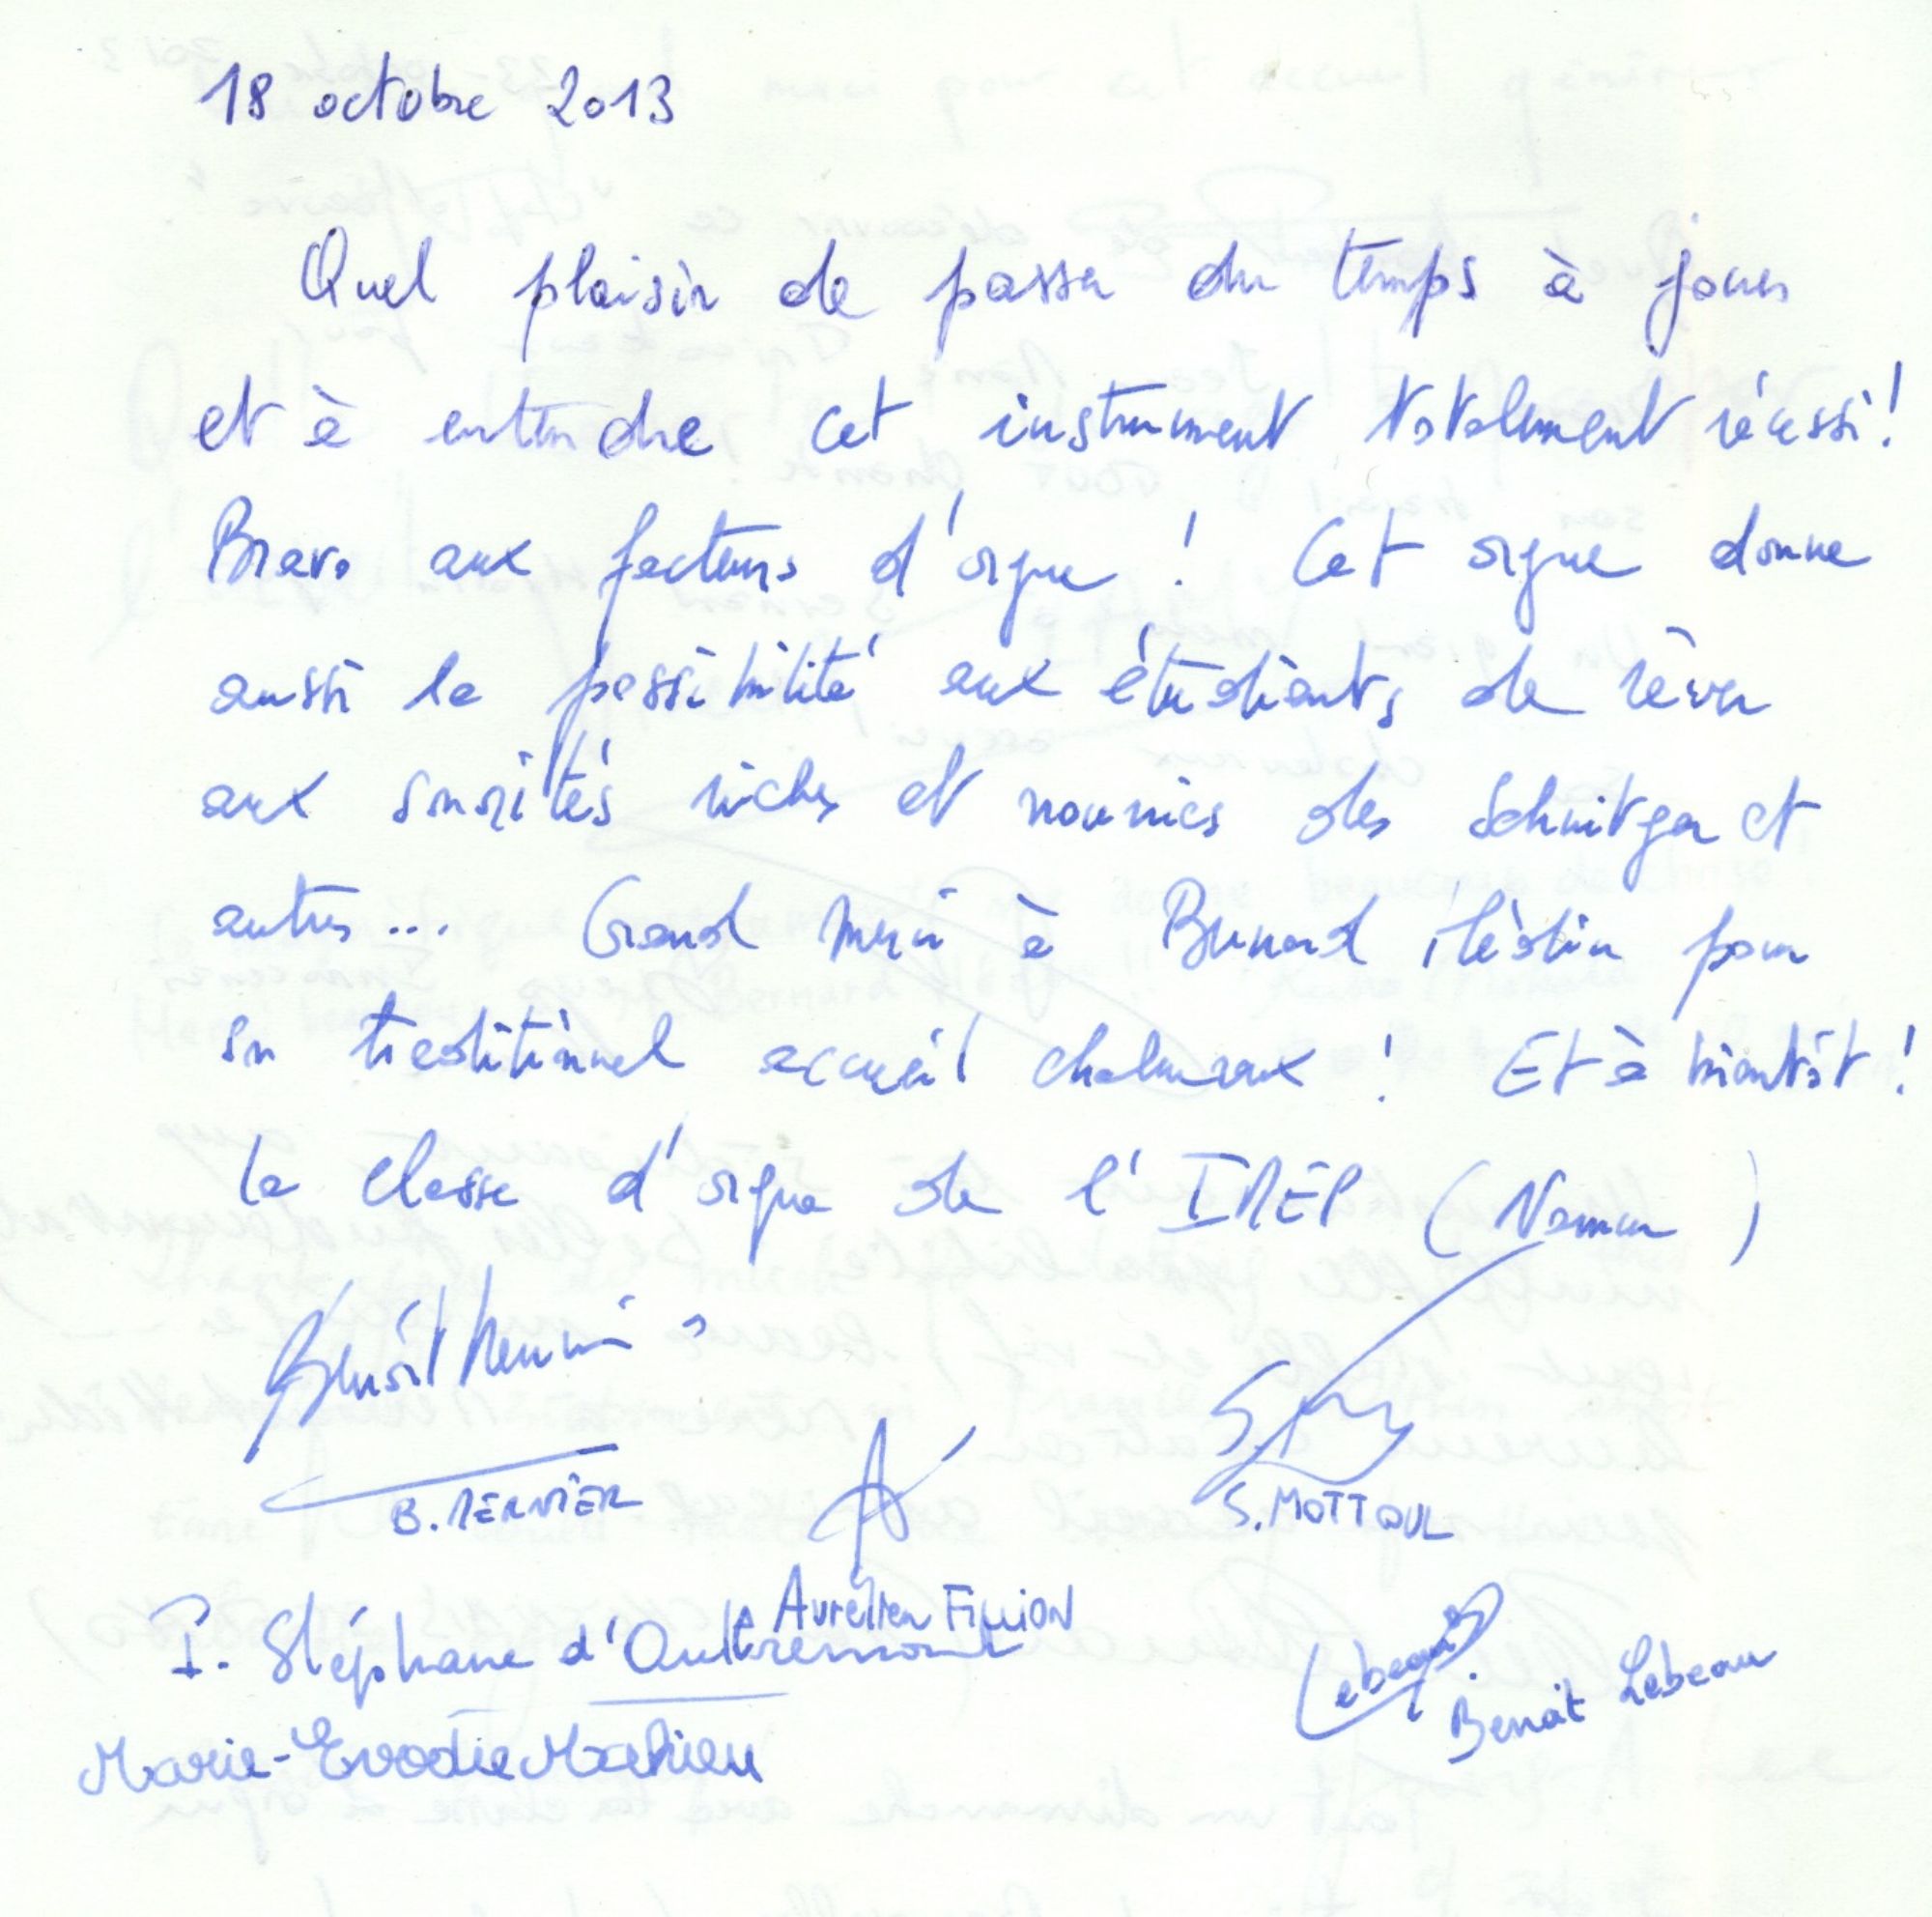 18 octobre 2013
Quel plaisir de passer du temps à jouer
et à entendre cet instrument totalement réussi!
Bravo aux facteurs d'orgue ! Cet orgue donne
aussi la possibilité aux étudiants de rêver
aux sonorités riches et nourries des Schnitger et
autres.... Grand merci à Bernard Hèdin pour
son traditionnel accueil chaleureux ! Et à bientôt !
La classe d'orgue de l'IMEP (Namur)
Benoît Mernier
B. MERNIER
S. MOTTOUL
Aurélien FILLION
P. Stéphane d'Oultremont
Lebeau
Benoît Lebeau
Marie-Evodie Mathieu